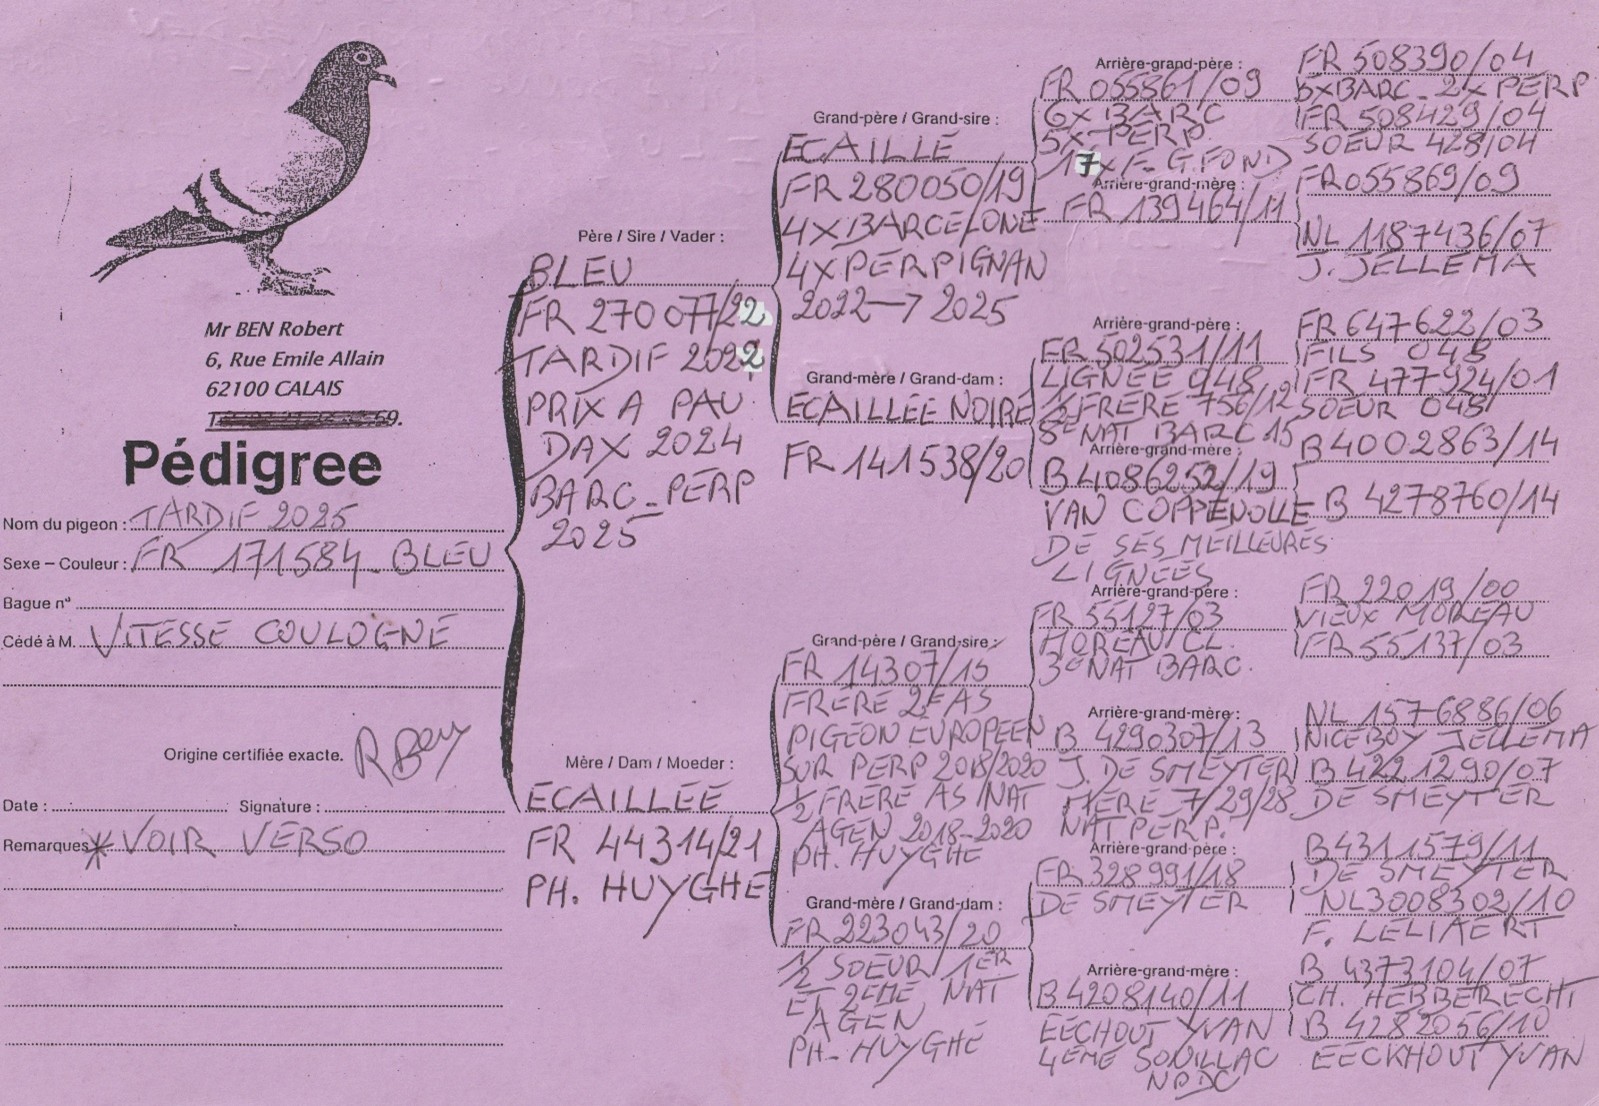 Mr BEN Robert
6, Rue Emile Allain
62100 CALAIS
Pédigree
Nom du pigeon : TARDIF 2025
Sexe – Couleur : FR 171584_ BLEU
Bague n°
Cédé à M. VITESSE COULOGNE
Origine certifiée exacte. R Ben
Date : Signature :
Remarques * VOIR VERSO
Père / Sire / Vader :
BLEU
FR 270077/22
TARDIF 2022
PRIX A PAU
DAX 2024
BARC_PERP
2025
Mère / Dam / Moeder :
ECAILLÉE
FR 44314/21
PH. HUYGHE
Grand-père / Grand-sire :
ECAILLE
FR 280050/19
4X BARCELONE
4X PERPIGNAN
2022 → 2025
Grand-mère / Grand-dam :
ECAILLÉE NOIRE
FR 141538/20
Grand-père / Grand-sire :
FR 14307/15
FRERE 2E AS
PIGEON EUROPEEN
SUR PERP 2018/2020
1/2 FRERE AS NAT
AGEN 2018-2020
PH. HUYGHE
Grand-mère / Grand-dam :
FR 223043/20
1/2 SOEUR 1ER
ET 2EME NAT
AGEN
PH_ HUYGHE
Arrière-grand-père :
FR 055861/09
6X BARC
5X PERP
17x F. G.FOND
Arrière-grand-mère :
FR 139464/11
Arrière-grand-père :
FR 502531/11
LIGNÉE 048
1/2 FRERE 756/12
8E NAT BARC 15
Arrière-grand-mère :
B 4086252/19
VAN COPPENOLLE
DE SES MEILLEURES
LIGNÉES
Arrière-grand-père :
FR 55127/03
MOREAU CL.
3E NAT BARC.
Arrière-grand-mère :
B 4290307/13
J. DE SMEYTER
MERE 7/29/28
NAT PERP.
Arrière-grand-père :
FR 328991/18
DE SMEYTER
Arrière-grand-mère :
B 4208140/11
EECHOUT YVAN
4EME SOUILLAC
NPDC
FR 508390/04
5XBARC_ 2X PERP
FR 508429/04
SOEUR 428/04
FR055869/09
NL 1187436/07
J. JELLEMA
FR 647622/03
FILS 048
FR 477924/01
SOEUR 048
B 4002863/14
B 4278760/14
FR 22019/00
VIEUX MOREAU
FR 55137/03
NL 1576886/06
NICEBOY JELLEMA
B 4221290/07
DE SMEYTER
B4311579/11
DE SMEYTER
NL3008302/10
F. LELIAERT
B 4373104/07
CH. HEBBERECHT
B 4282056/10
EECKHOUT YVAN